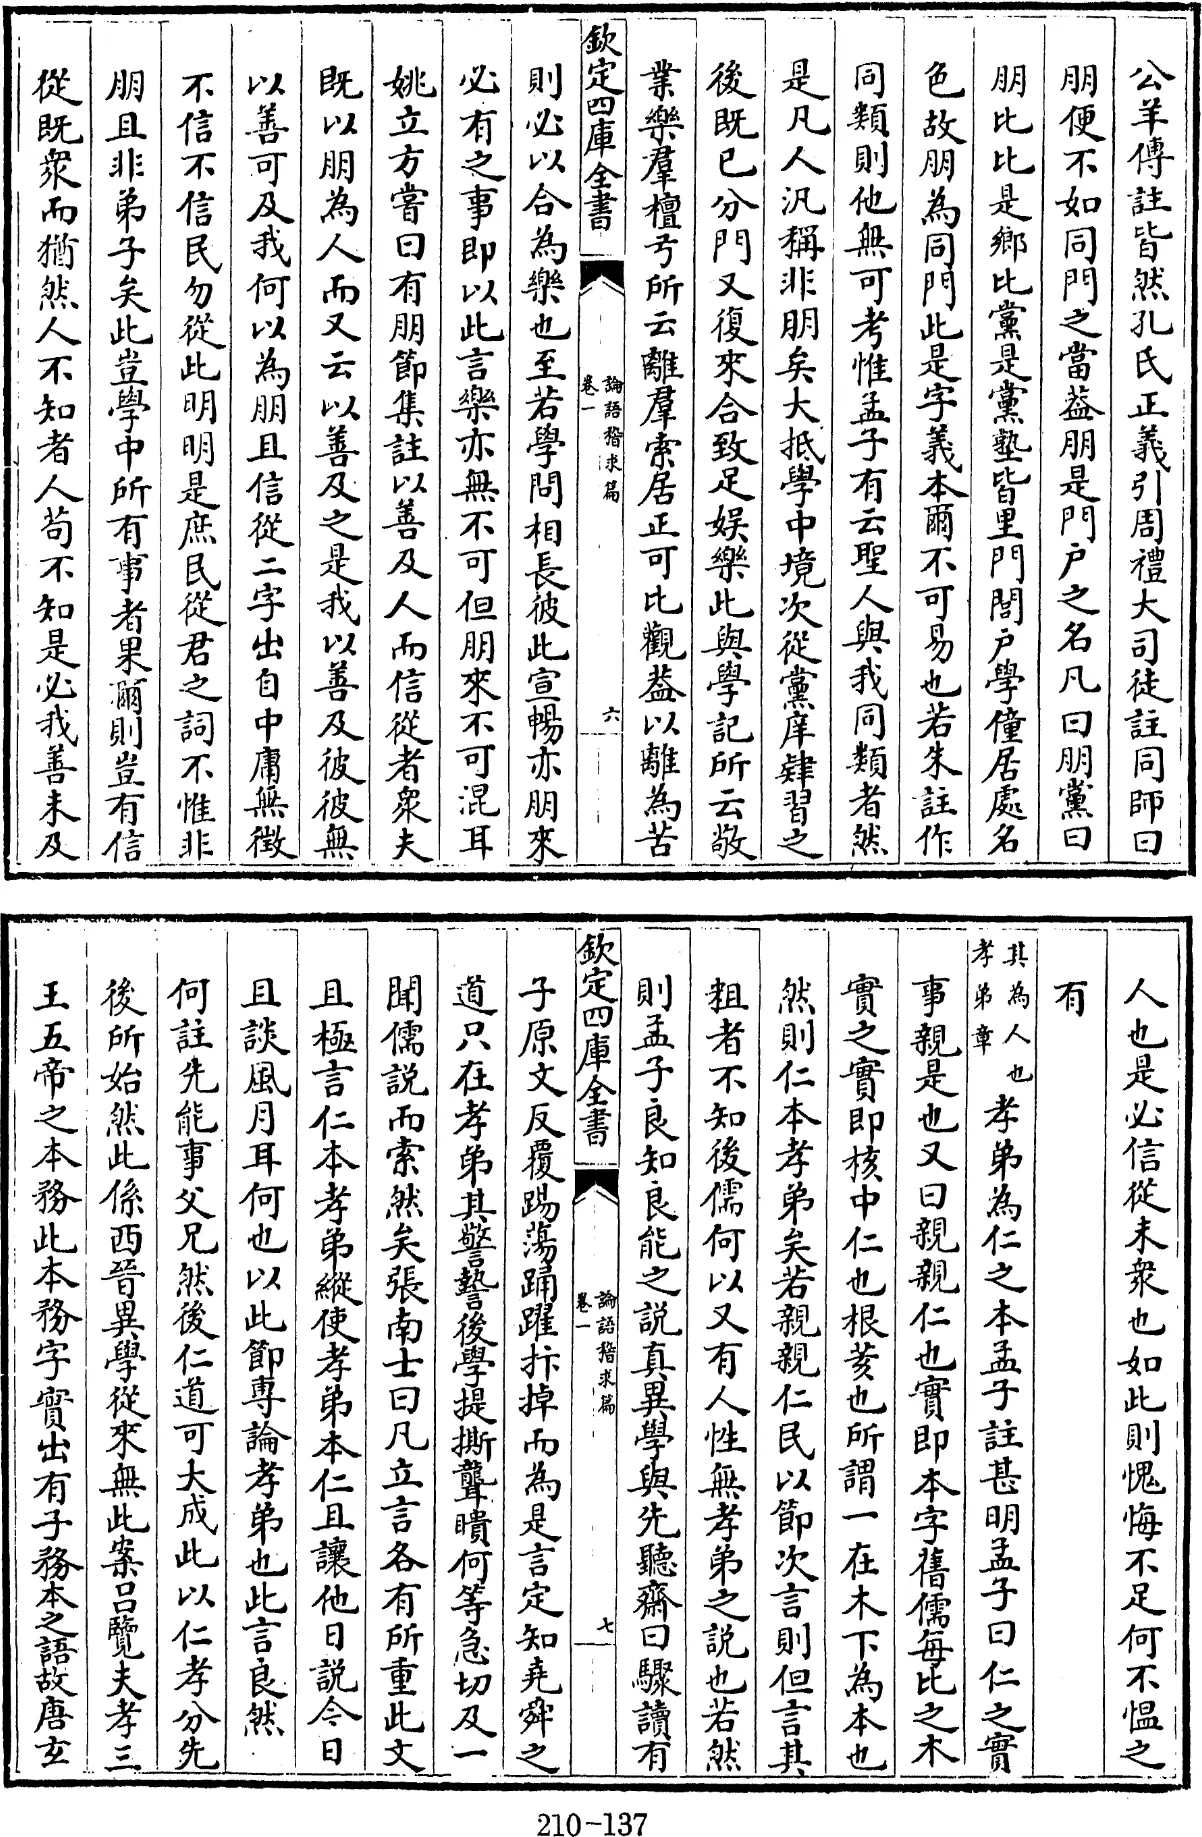 公羊傳註皆然孔氏正義引周禮大司徒註同師曰
朋便不如同門之當葢朋是門戶之名凡曰朋黨曰
朋比比是鄉比黨是黨塾皆里門閭戶學僮居處名
色故朋為同門此是字義本爾不可易也若朱註作
同類則他無可考惟孟子有云聖人與我同類者然
是凡人汎稱非朋矣大抵學中境次從黨庠肄習之
後既已分門又復來合致足娛樂此與學記所云敬
業樂羣檀弓所云離羣索居正可比觀葢以離為苦
欽定四庫全書
論語稽求篇
卷一
六
則必以合為樂也至若學問相長彼此宣暢亦朋來
必有之事即以此言樂亦無不可但朋來不可混耳
姚立方嘗曰有朋節集註以善及人而信從者衆夫
既以朋為人而又云以善及之是我以善及彼彼無
以善可及我何以為朋且信從二字出自中庸無徵
不信不信民勿從此明明是庶民從君之詞不惟非
朋且非弟子矣此豈學中所有事者果爾則豈有信
從既衆而猶然人不知者人苟不知是必我善未及
人也是必信從未衆也如此則愧悔不足何不愠之
有
其為人也
孝弟章
孝弟為仁之本孟子註甚明孟子曰仁之實
事親是也又曰親親仁也實即本字舊儒每比之木
實之實即核中仁也根荄也所謂一在木下為本也
然則仁本孝弟矣若親親仁民以節次言則但言其
粗者不知後儒何以又有人性無孝弟之說也若然
則孟子良知良能之說真異學與先聽齋曰驟讀有
欽定四庫全書
論語稽求篇
卷一
七
子原文反覆踢蕩踊躍抃掉而為是言定知堯舜之
道只在孝弟其警謷後學提撕聾瞶何等急切及一
聞儒說而索然矣張南士曰凡立言各有所重此文
且極言仁本孝弟縱使孝弟本仁且讓他日說今日
且談風月耳何也以此節專論孝弟也此言良然
何註先能事父兄然後仁道可大成此以仁孝分先
後所始然此係西晉異學從來無此案呂覽夫孝三
王五帝之本務此本務字實出有子務本之語故唐玄
210-137